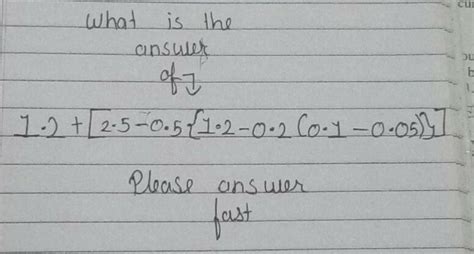 What is the
answer
of ↴
1.2 + [2.5-0.5{1.2-0.2(0.1-0.05)}]
Please answer
fast